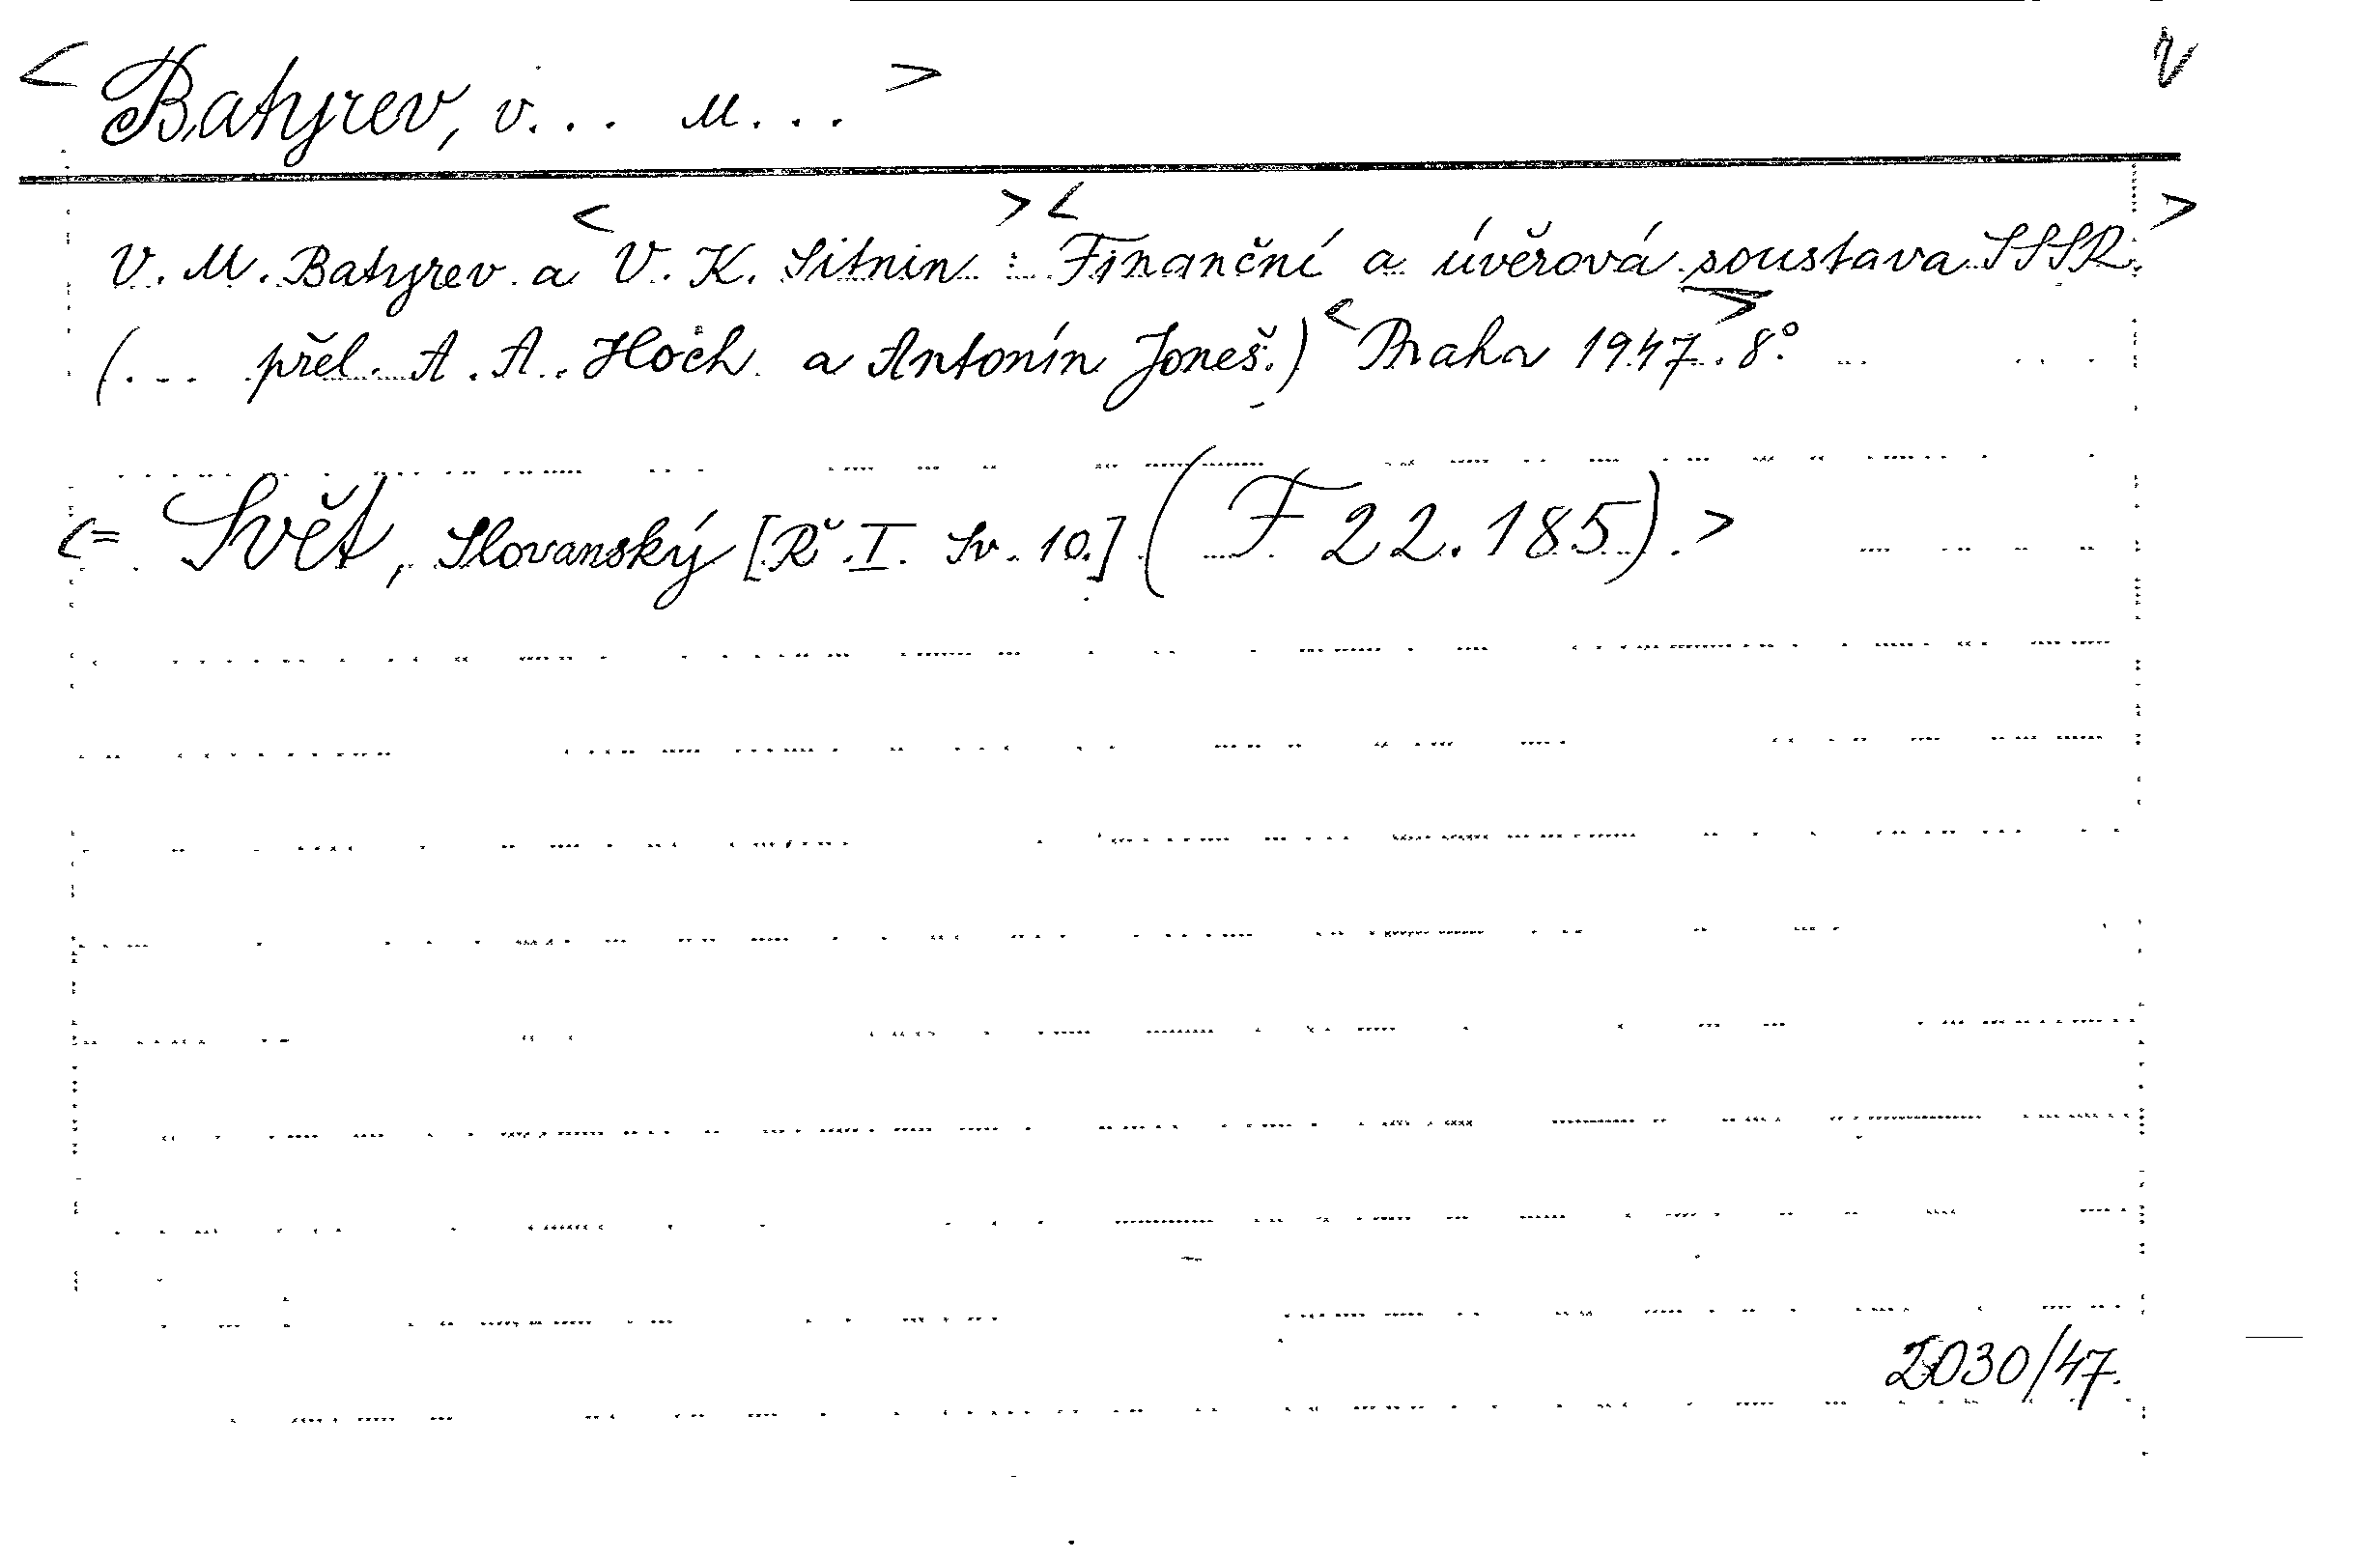 <Batyrev, V... M...> v
V. M. Batyrev a <V. K. Sitnin>: <Finanční a úvěrová soustava SSSR.>
(... přel. A. A. Hoch a Antonín Joneš.) <Praha 1947>. 8°
<= Svět, Slovanský [Ř. I. Sv. 10.] (F 22.185).>
2030/47.